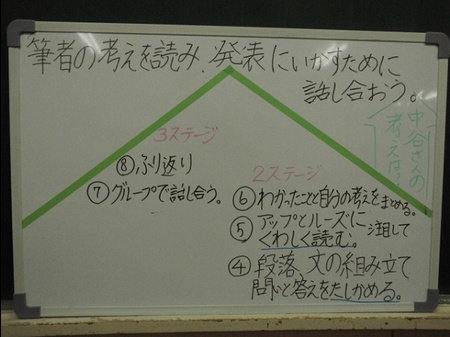 筆者の考えを読み、発表にいかすために
話し合おう。
中谷さんの
考えは？
3ステージ
⑧ふり返り
⑦グループで話し合う。
2ステージ
⑥わかったことと自分の考えをまとめる。
⑤アップとルーズに
注目して
くわしく読む。
④段落、文の組み立て
問いと答えをたしかめる。